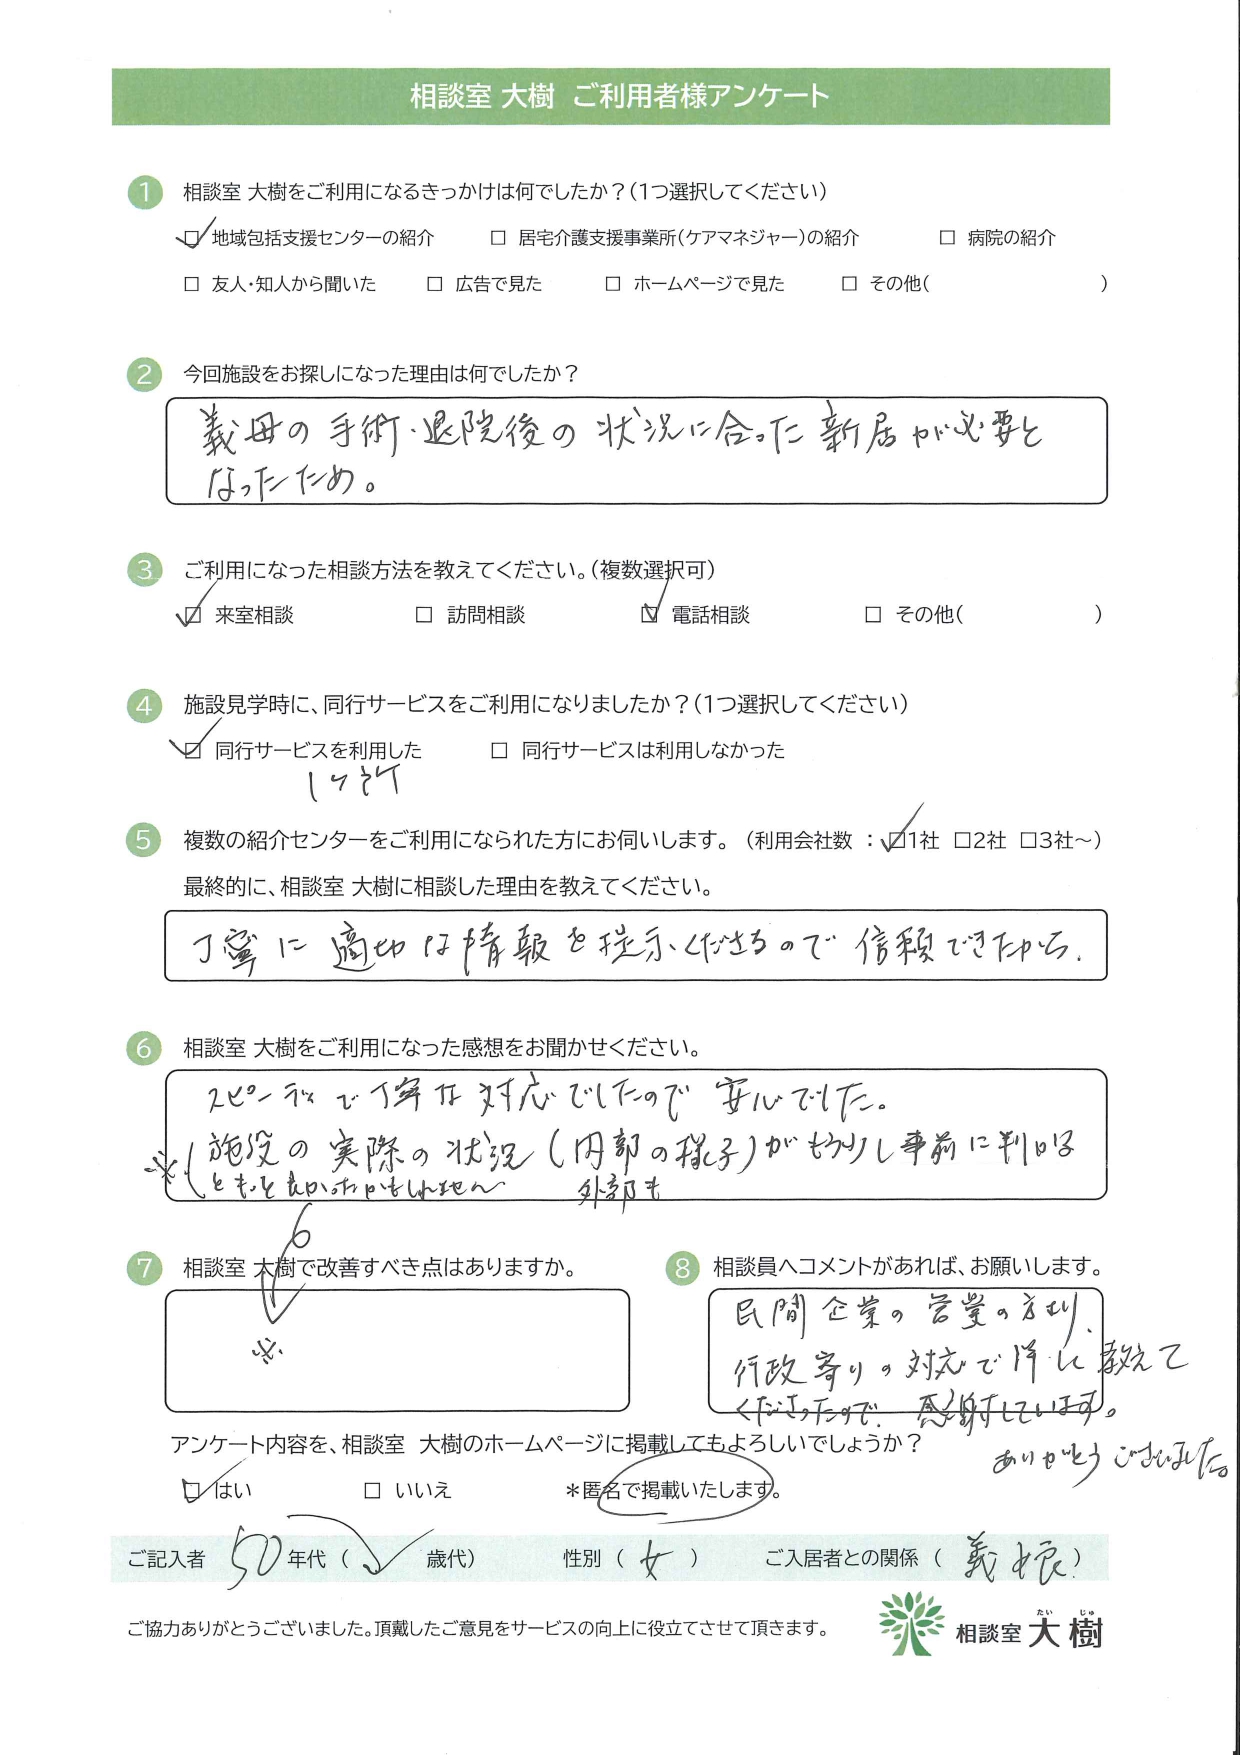 相談室 大樹 ご利用者様アンケート
1 相談室 大樹をご利用になるきっかけは何でしたか?(1つ選択してください)
☑ 地域包括支援センターの紹介 □ 居宅介護支援事業所(ケアマネジャー)の紹介 □ 病院の紹介
□ 友人・知人から聞いた □ 広告で見た □ ホームページで見た □ その他( )
2 今回施設をお探しになった理由は何でしたか?
義母の手術・退院後の状況に合った新居が必要と
なったため。
3 ご利用になった相談方法を教えてください。(複数選択可)
☑ 来室相談 □ 訪問相談 ☑ 電話相談 □ その他( )
4 施設見学時に、同行サービスをご利用になりましたか?(1つ選択してください)
☑ 同行サービスを利用した □ 同行サービスは利用しなかった
1ヶ所
5 複数の紹介センターをご利用になられた方にお伺いします。(利用会社数 : ☑1社 □2社 □3社~)
最終的に、相談室 大樹に相談した理由を教えてください。
丁寧に適切な情報を提示くださるので信頼できたから.
6 相談室 大樹をご利用になった感想をお聞かせください。
スピーディで丁寧な対応でしたので安心でした。
※(施設の実際の状況(内部の様子)がもう少し事前に判ol
ともっと良かったかもしれません 外部も
6
7 相談室 大樹で改善すべき点はありますか。
※
8 相談員へコメントがあれば、お願いします。
民間企業の営業の方より、
行政寄りの対応で詳しく教えて
くださったので、感謝しています。
ありがとうございました。
アンケート内容を、相談室 大樹のホームページに掲載してもよろしいでしょうか?
☑ はい □ いいえ *匿名で掲載いたします。
ご記入者 50年代( 歳代) 性別(女) ご入居者との関係(義娘)
ご協力ありがとうございました。頂戴したご意見をサービスの向上に役立てさせて頂きます。
たい じゅ
相談室 大樹